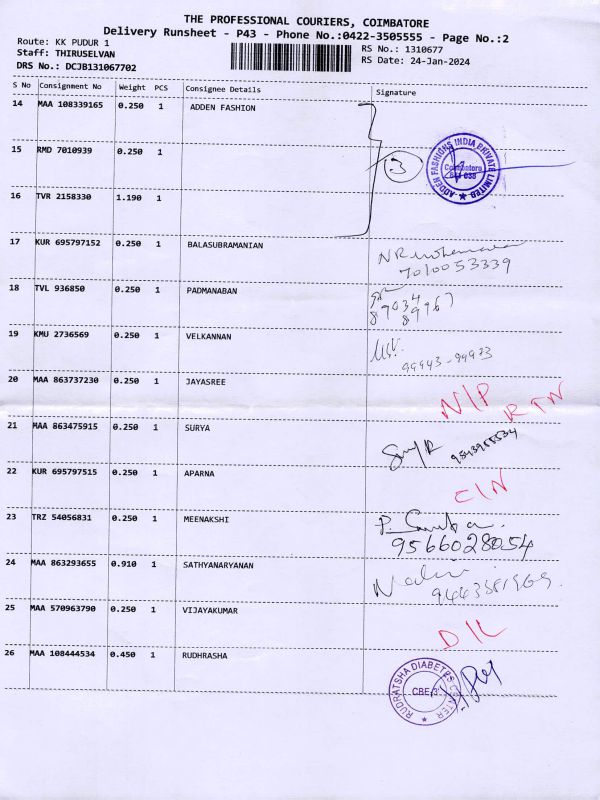 THE PROFESSIONAL COURIERS, COIMBATORE
Delivery Runsheet - P43 - Phone No.:0422-3505555 - Page No.:2
Route: KK PUDUR 1
Staff: THIRUSELVAN
DRS No.: DCJB131067702
RS No.: 1310677
RS Date: 24-Jan-2024
S No Consignment No Weight PCS Consignee Details Signature
14 MAA 108339165 0.250 1 ADDEN FASHION
15 RMD 7010939 0.250 1
3
ADDEN FASHIONS INDIA PRIVATE LIMITED
Coimbatore
16 TVR 2158330 1.190 1
17 KUR 695797152 0.250 1 BALASUBRAMANIAN
7010053339
18 TVL 936850 0.250 1 PADMANABAN
89034
89967
19 KMU 2736569 0.250 1 VELKANNAN
99943-99933
20 MAA 863737230 0.250 1 JAYASREE N/P RTN
21 MAA 863475915 0.250 1 SURYA
22 KUR 695797515 0.250 1 APARNA C/N
23 TRZ 54056831 0.250 1 MEENAKSHI
9566028054
24 MAA 863293655 0.910 1 SATHYANARYANAN
25 MAA 570963790 0.250 1 VIJAYAKUMAR D/L
26 MAA 108444534 0.450 1 RUDHRASHA
RUDRATSHA DIABETES CENTER